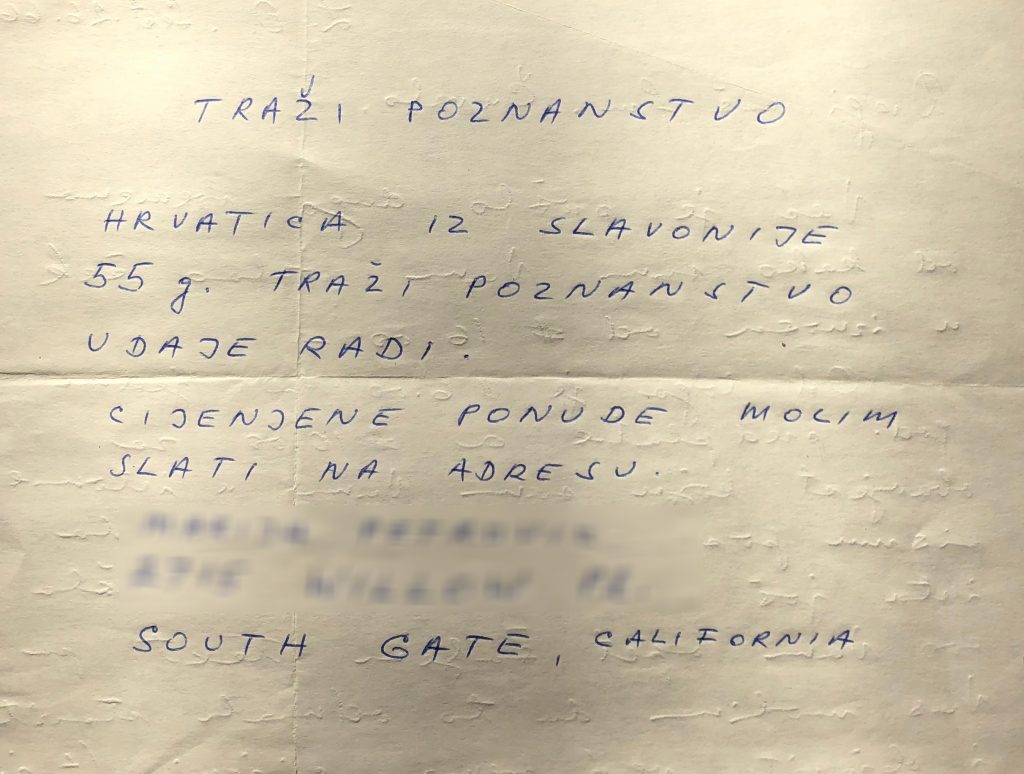 TRAŽI POZNANSTVO
HRVATICA IZ SLAVONIJE
55 g. TRAŽI POZNANSTVO
UDAJE RADI.
CIJENJENE PONUDE MOLIM
SLATI NA ADRESU.
SOUTH GATE, CALIFORNIA